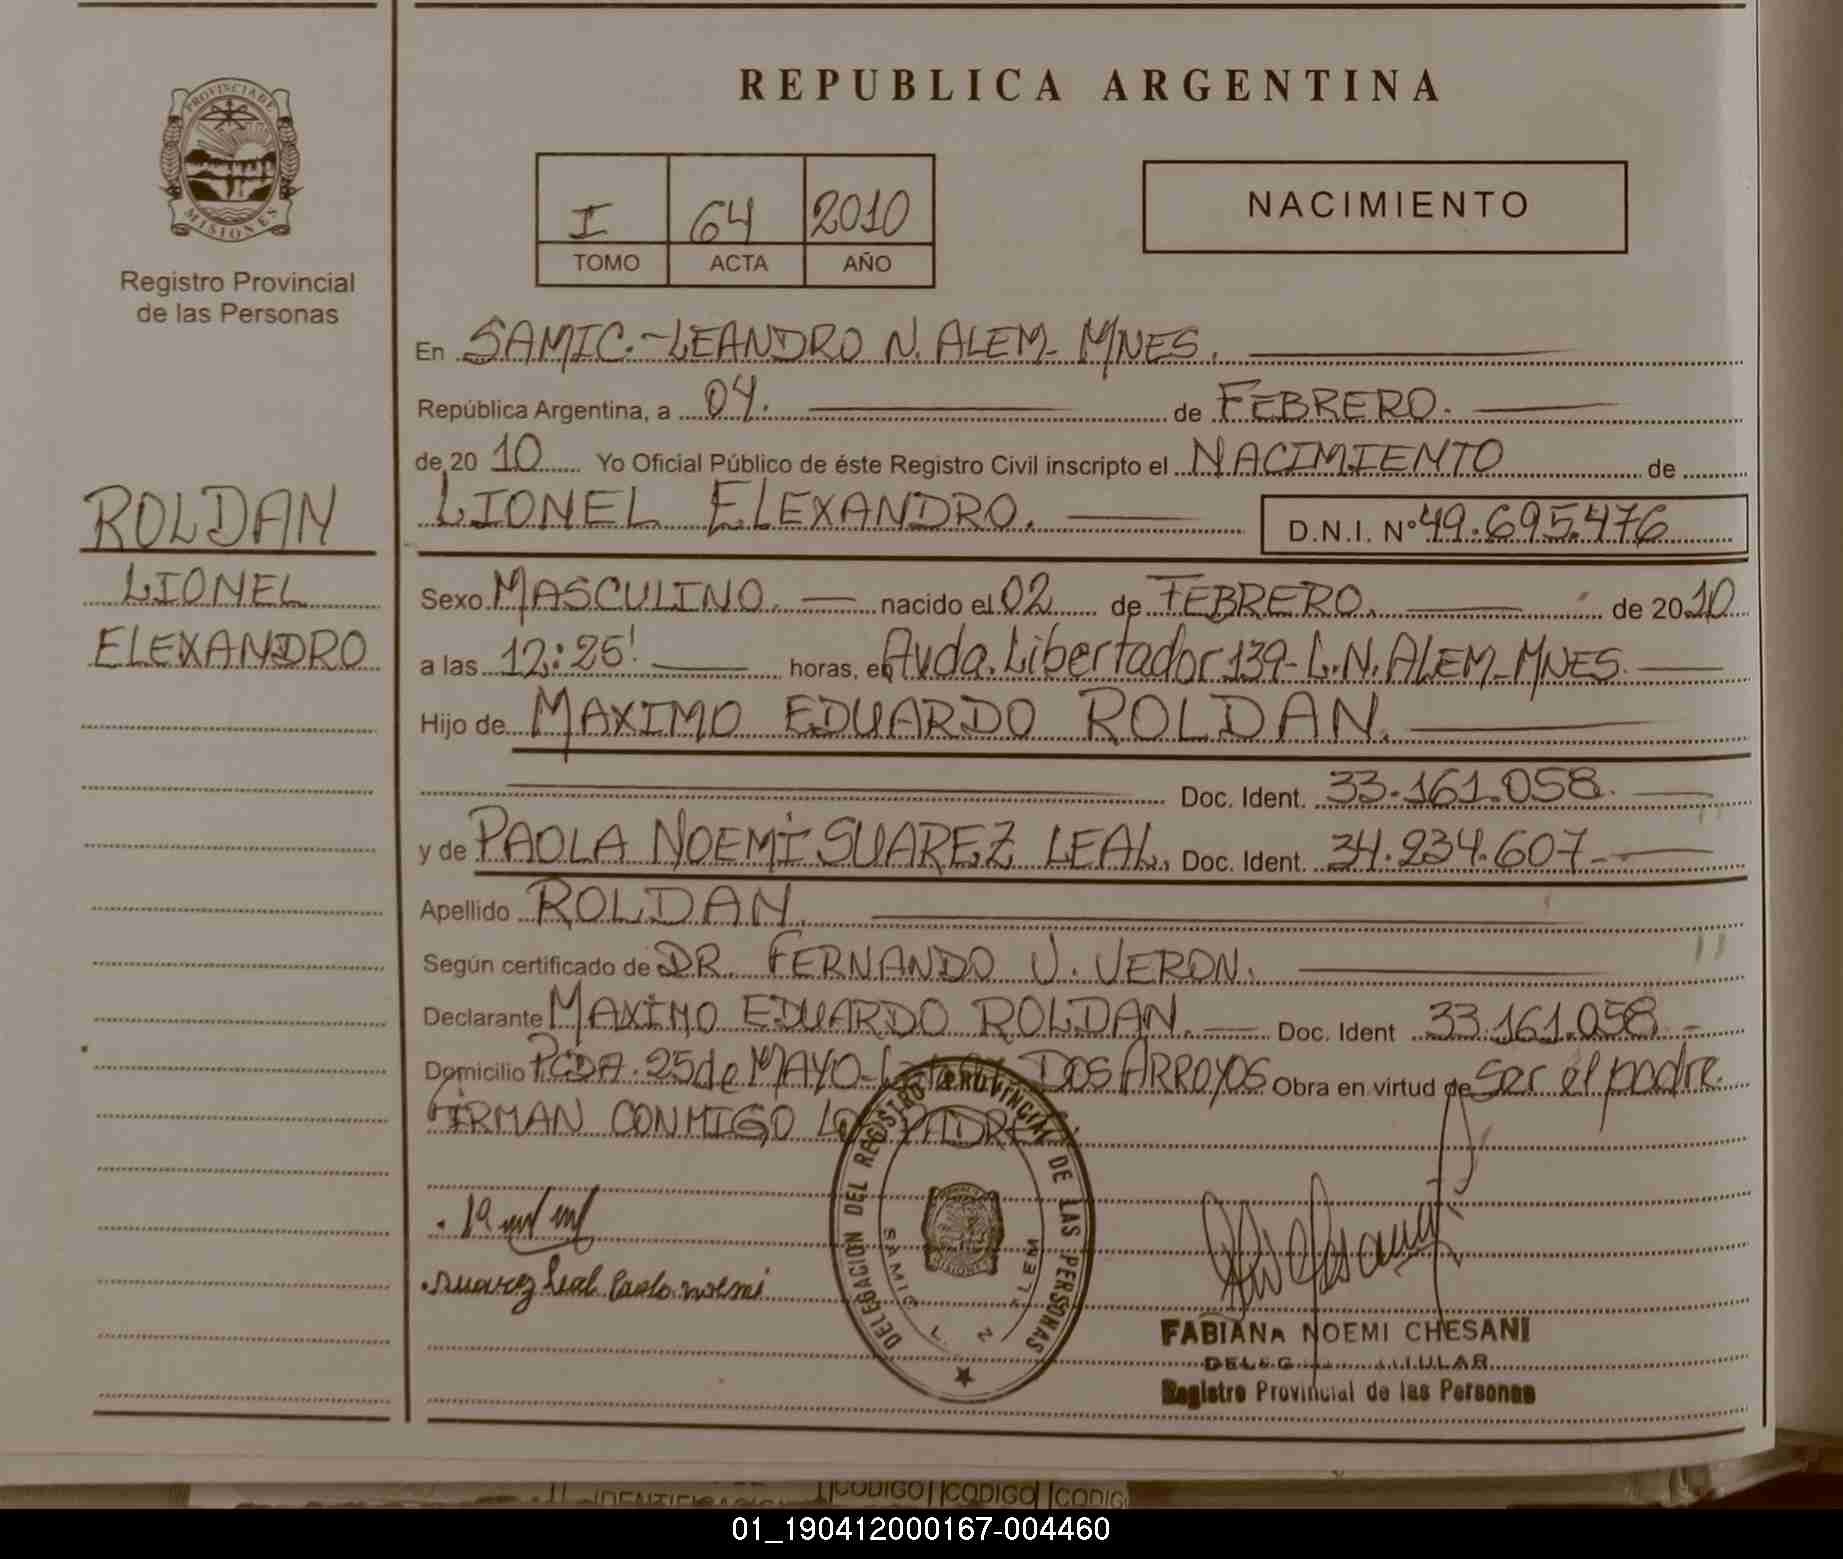 REPUBLICA ARGENTINA
PROVINCIA DE
MISIONES
Registro Provincial
de las Personas
I 64 2010
TOMO ACTA AÑO
NACIMIENTO
En SAMIC.-LEANDRO N. ALEM- MNES.
República Argentina, a 04. de FEBRERO.
de 20 10 Yo Oficial Público de éste Registro Civil inscripto el NACIMIENTO de
LIONEL ELEXANDRO. D.N.I. Nº 49.695.476
ROLDAN
LIONEL
ELEXANDRO
Sexo MASCULINO. nacido el 02 de FEBRERO. de 20 10
a las 12:25' horas, en Avda. Libertador 139- L.N. ALEM-MNES.
Hijo de MAXIMO EDUARDO ROLDAN.
Doc. Ident. 33.161.058.
y de PAOLA NOEMI SUAREZ LEAL. Doc. Ident. 34.234.607-
Apellido ROLDAN.
Según certificado de DR. FERNANDO V. VERON.
Declarante MAXIMO EDUARDO ROLDAN. Doc. Ident 33.161.058-
Domicilio PCDA. 25 de MAYO- DOS ARROYOS Obra en virtud de ser el padre.
FIRMAN CONMIGO LOS PADRES.
Suarez Leal Paola noemi
DELEGACION DEL REGISTRO PROVINCIAL DE LAS PERSONAS
SAMIC L. N. ALEM
FABIANA NOEMI CHESANI
Registro Provincial de las Personas
CODIGO CODIGO
01_190412000167-004460